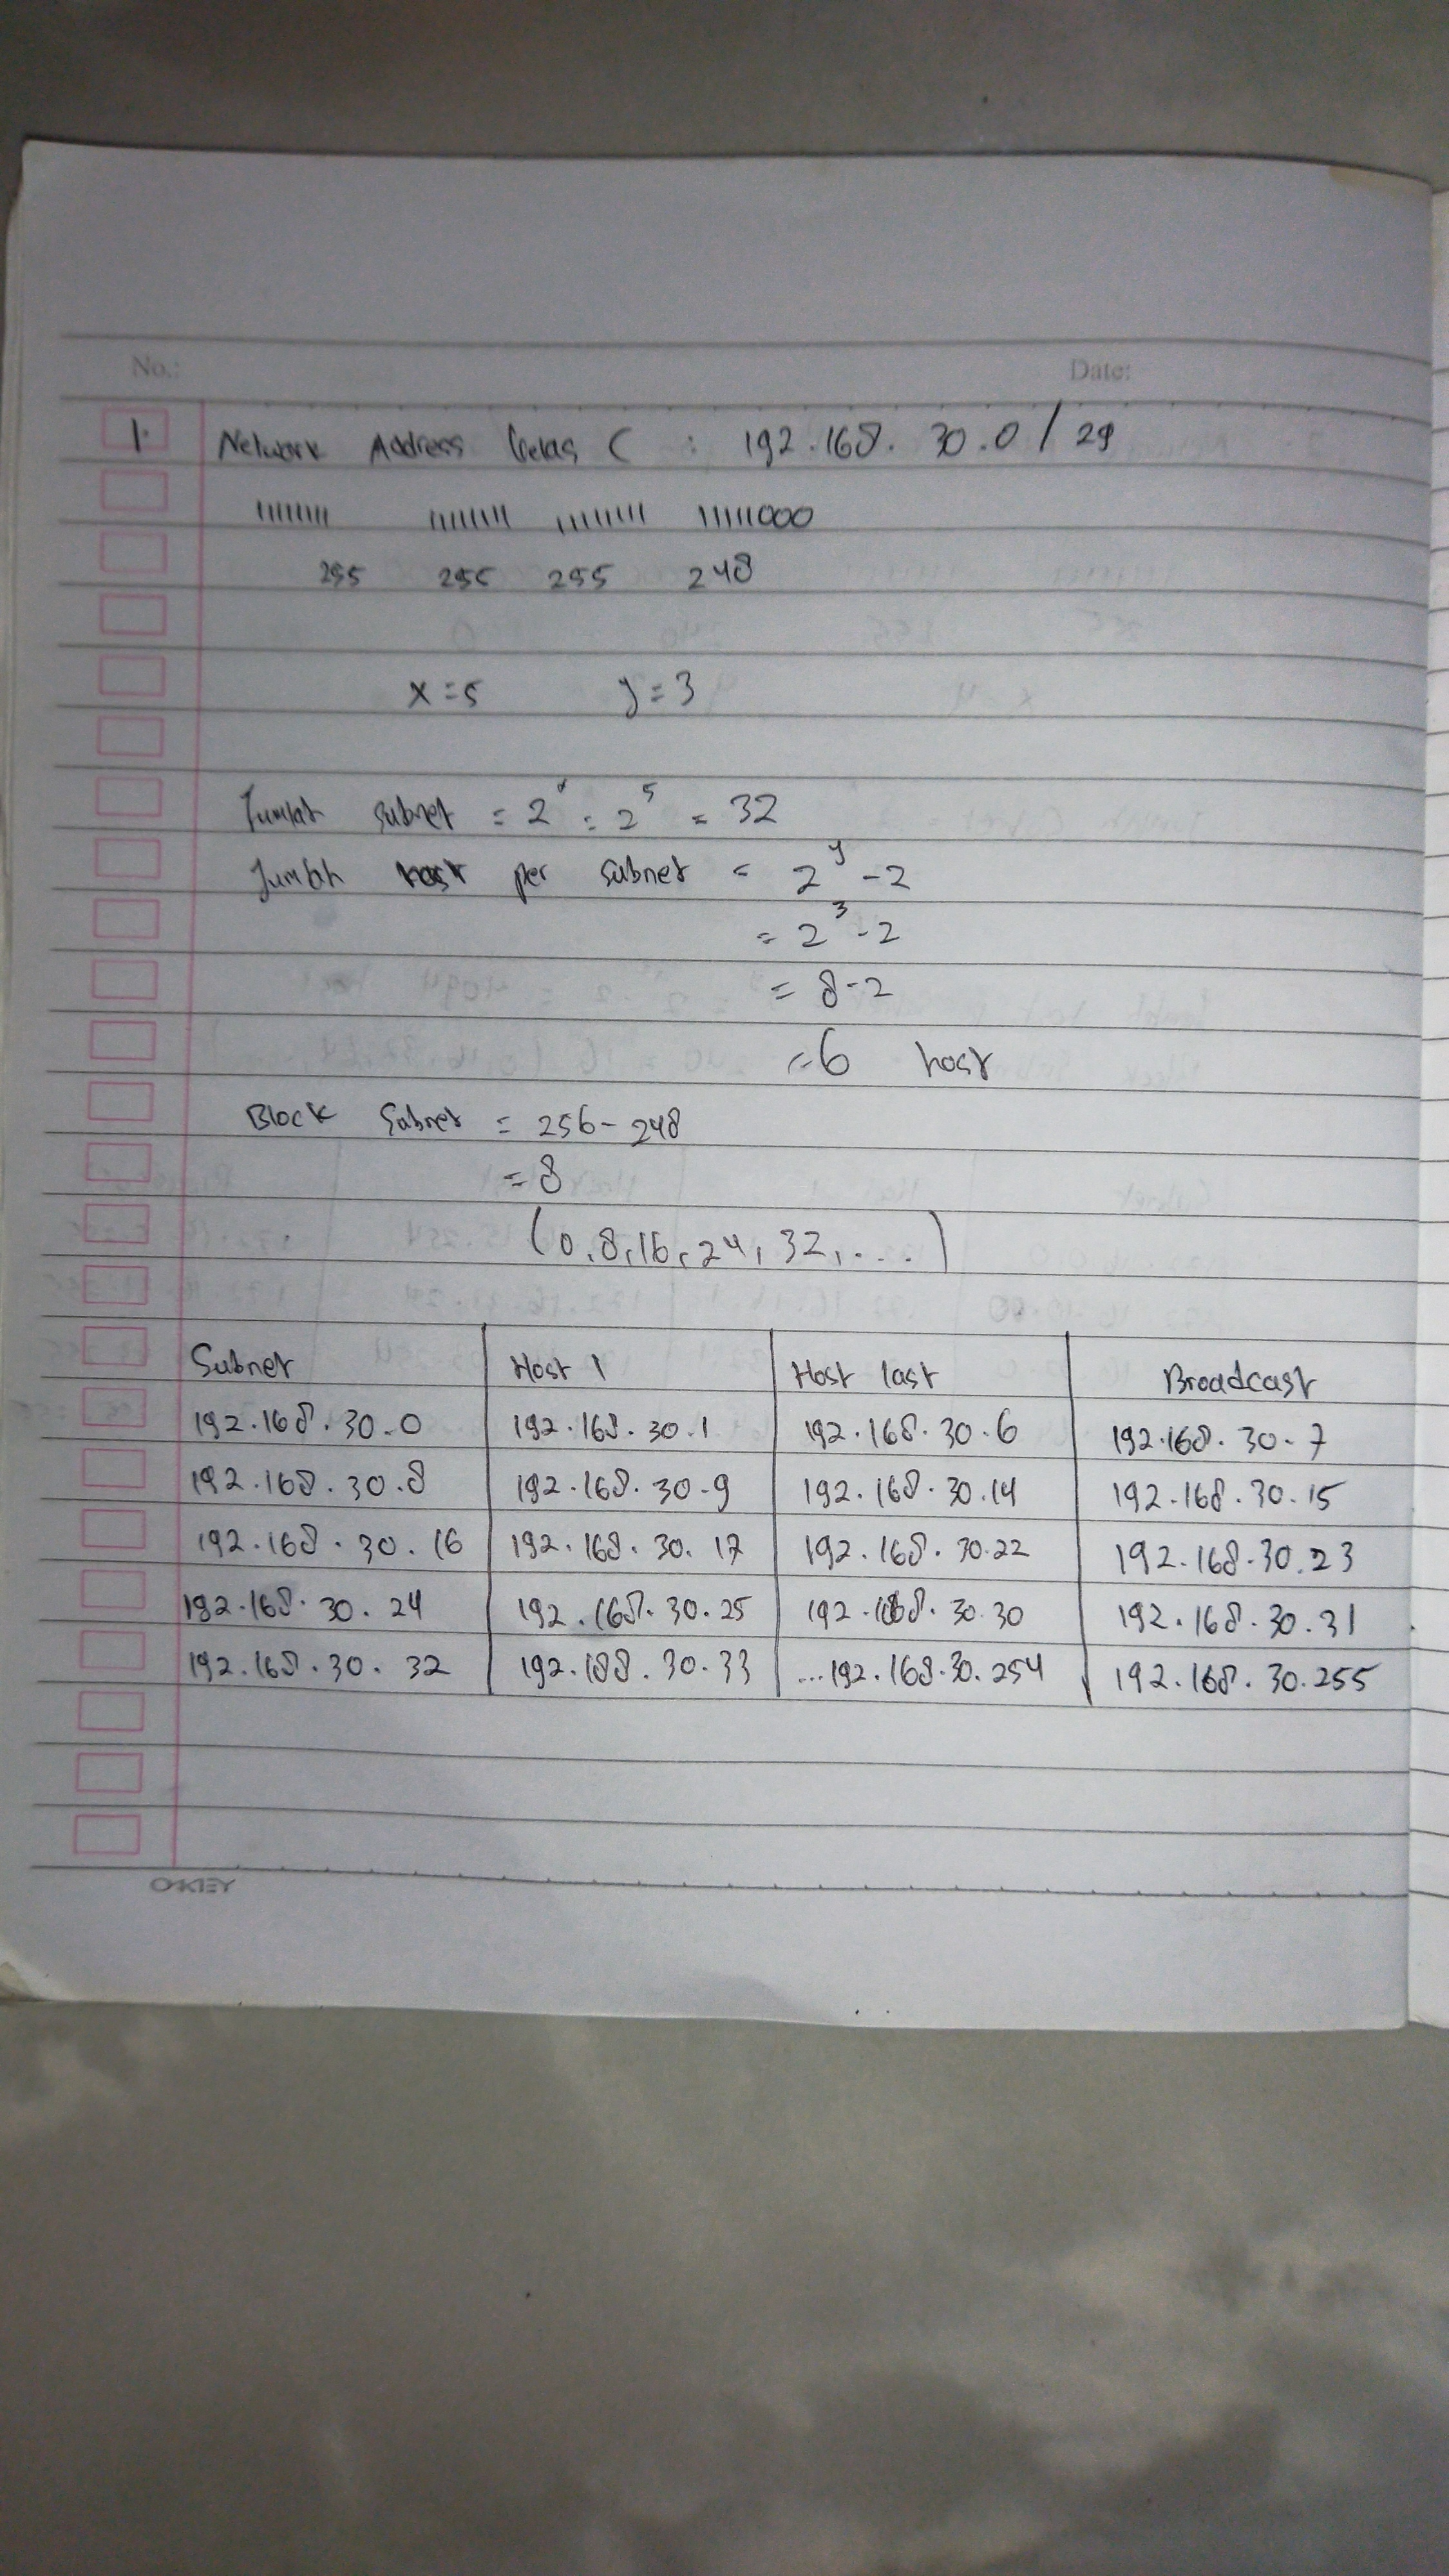 No.: Date:
1. Network Address kelas C : 192.168.30.0 / 29
11111111 11111111 11111111 11111000
255 255 255 248
x = 5 y = 3
Jumlah subnet = 2ˣ = 2⁵ = 32
Jumlah host per subnet = 2ʸ - 2
= 2³ - 2
= 8 - 2
= 6 host
Block Subnet = 256 - 248
= 8
(0, 8, 16, 24, 32, ...)
Subnet Host 1 Host last Broadcast
192.168.30.0 192.168.30.1 192.168.30.6 192.168.30.7
192.168.30.8 192.168.30.9 192.168.30.14 192.168.30.15
192.168.30.16 192.168.30.17 192.168.30.22 192.168.30.23
192.168.30.24 192.168.30.25 192.168.30.30 192.168.30.31
192.168.30.32 192.188.30.33 ...192.168.30.254 192.168.30.255
OKEY